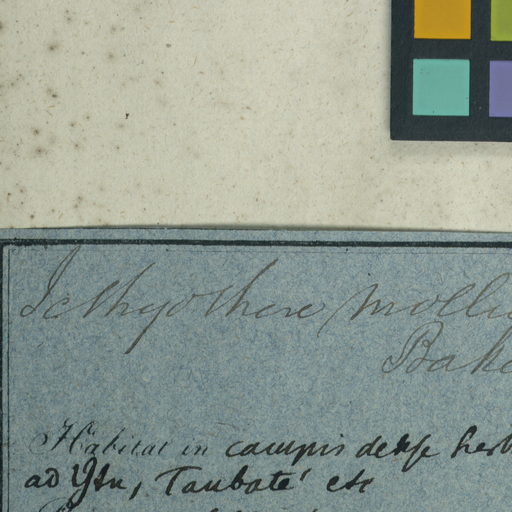 Ichthyothere molli
Bake
Habitat in campis dense herb
ad Ytu, Taubaté etc